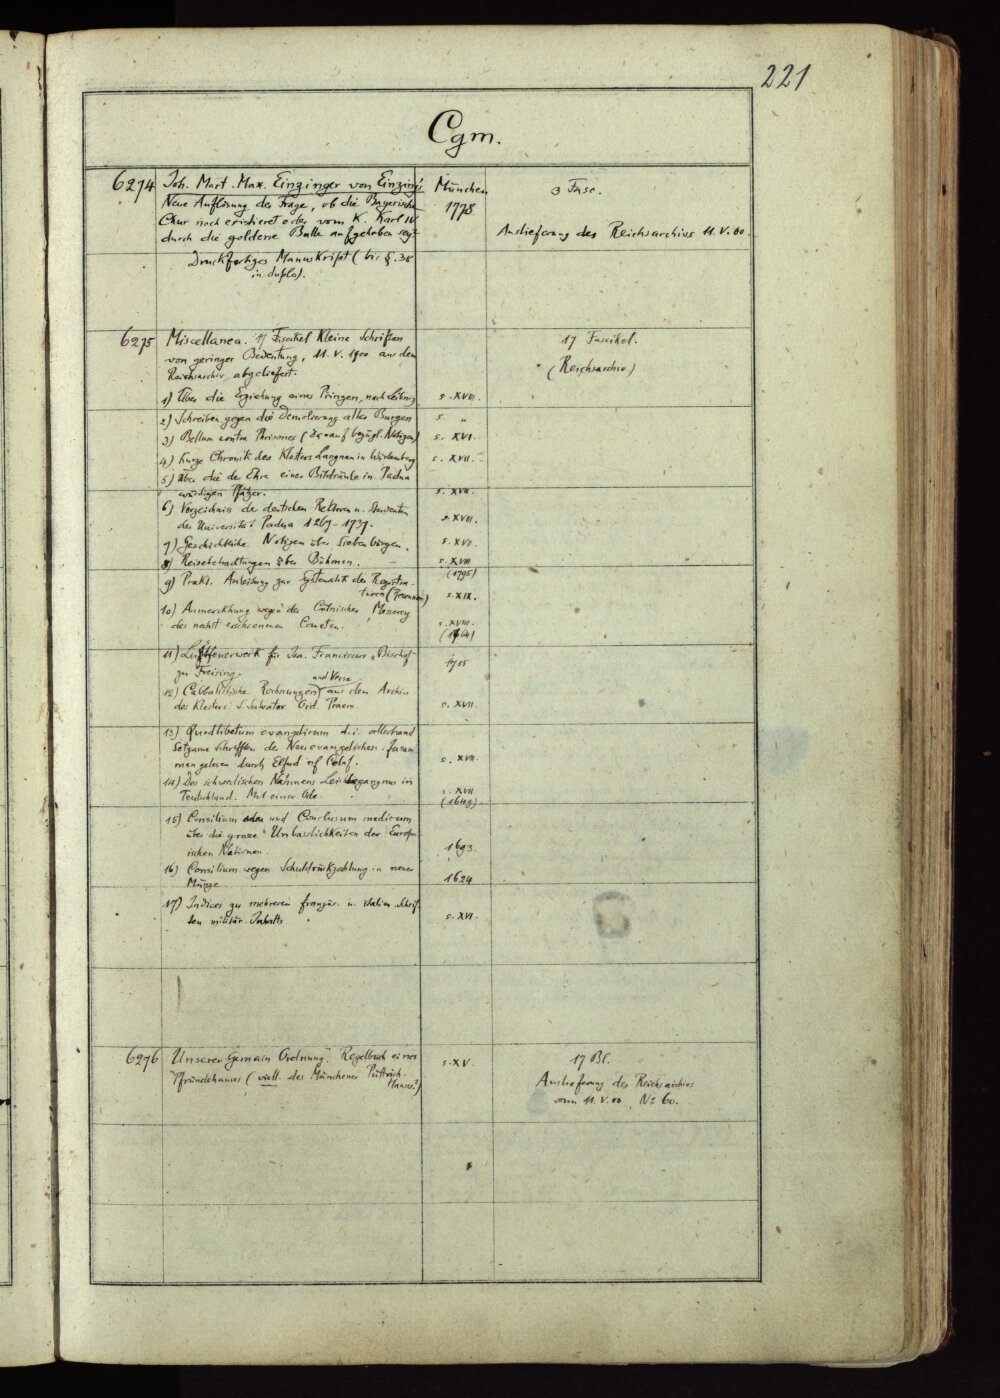 221
Cgm.
6274 Joh. Mart. Max. Einzinger von Einzing: München 3 Fasc.
Neue Auflösung der Frage, ob die Bayerische 1778
Chur noch existieret oder vom K. Karl IV
durch die goldene Bulle aufgehoben sey? Auslieferung des Reichsarchivs 11.V.00.
Druckfertiges Manuskript (bis §. 38
in duplo).
6275 Miscellanea. 17 Fascikel kleine Schriften 17 Fascikel.
von geringer Bedeutung, 11.V.1900 aus dem (Reichsarchiv)
Reichsarchiv abgeliefert.
1) Über die Erziehung eines Prinzen, nach Leibniz s. XVIII.
2) Schreiben gegen die Demolierung alter Burgen s. "
3) Bellum contra Phrisones (darauf bezügl. Notizen) s. XVI.
4) Kurze Chronik des Klosters Langnau in Würtemberg s. XVII.
5) Über die der Ehre einer Bildsäule in Padua
würdigen Pfälzer. s. XVIII.
6) Verzeichniss der deutschen Rektoren u. Studenten
der Universität Padua 1267–1737. s. XVIII.
7) Geschichtliche Notizen über Siebenbürgen. s. XVII.
8) Reisebetrachtungen über Böhmen. s. XVIII
(1795)
9) Prakt. Anleitung zur Systematik der Registra-
turen s. XIX.
10) Anmerckhung wegen der Cölnischer Messerey s. XVIII.
des nechst erschienenen Cometen. (1764)
11) Luftfeuerwerk für Joa. Franciscus, Bischof 1715
zu Freising.
und Verse
12) Cabbalistische Rechnungen aus dem Archiv
des Klosters S. Salvator Ord. Praem. s. XVII.
13) Quodlibetum evangelicum d. i. allerhand
seltzame Schrifften der Neuevangelischen zusam
men gelesen durch s. XVII.
14) Des schwedischen Nahmens Leichbegängnus in s. XVII
Teutschland. Mit einer Ode. (1649)
15) Consilium und Conclusum medicum
über die grosse Unbässlichkeiten der Europe-
ischen Nationen. 1693.
16) Consilium wegen Schuldrückzahlung in neuer
Münze 1624
17) Indices zu mehreren französ. u. italien. Schrif-
ten militär. Inhalts s. XVI.
6276 "Unserer Gemain Ordnung". Regelbuch eines s. XV. 17 Bl.
Pfründehauses (viell. des Münchener Püttrich- Auslieferung des Reichsarchivs
Hauses?) vom 11.V.00, No 60.